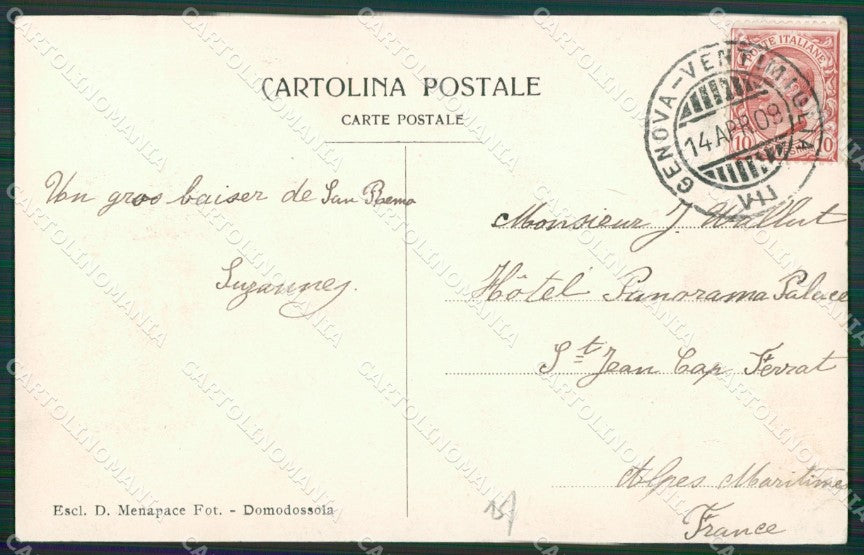 CARTOLINA POSTALE
CARTE POSTALE
POSTE ITALIANE
10 10
GENOVA-VENTIMIGLIA
14 APR 09
VII
Un gros baiser de San Remo
Suzanne
Monsieur J. Wallut
Hôtel Panorama Palace
St Jean Cap Ferrat
Alpes Maritimes
France
Escl. D. Menapace Fot. - Domodossola
CARTOLINOMANIA